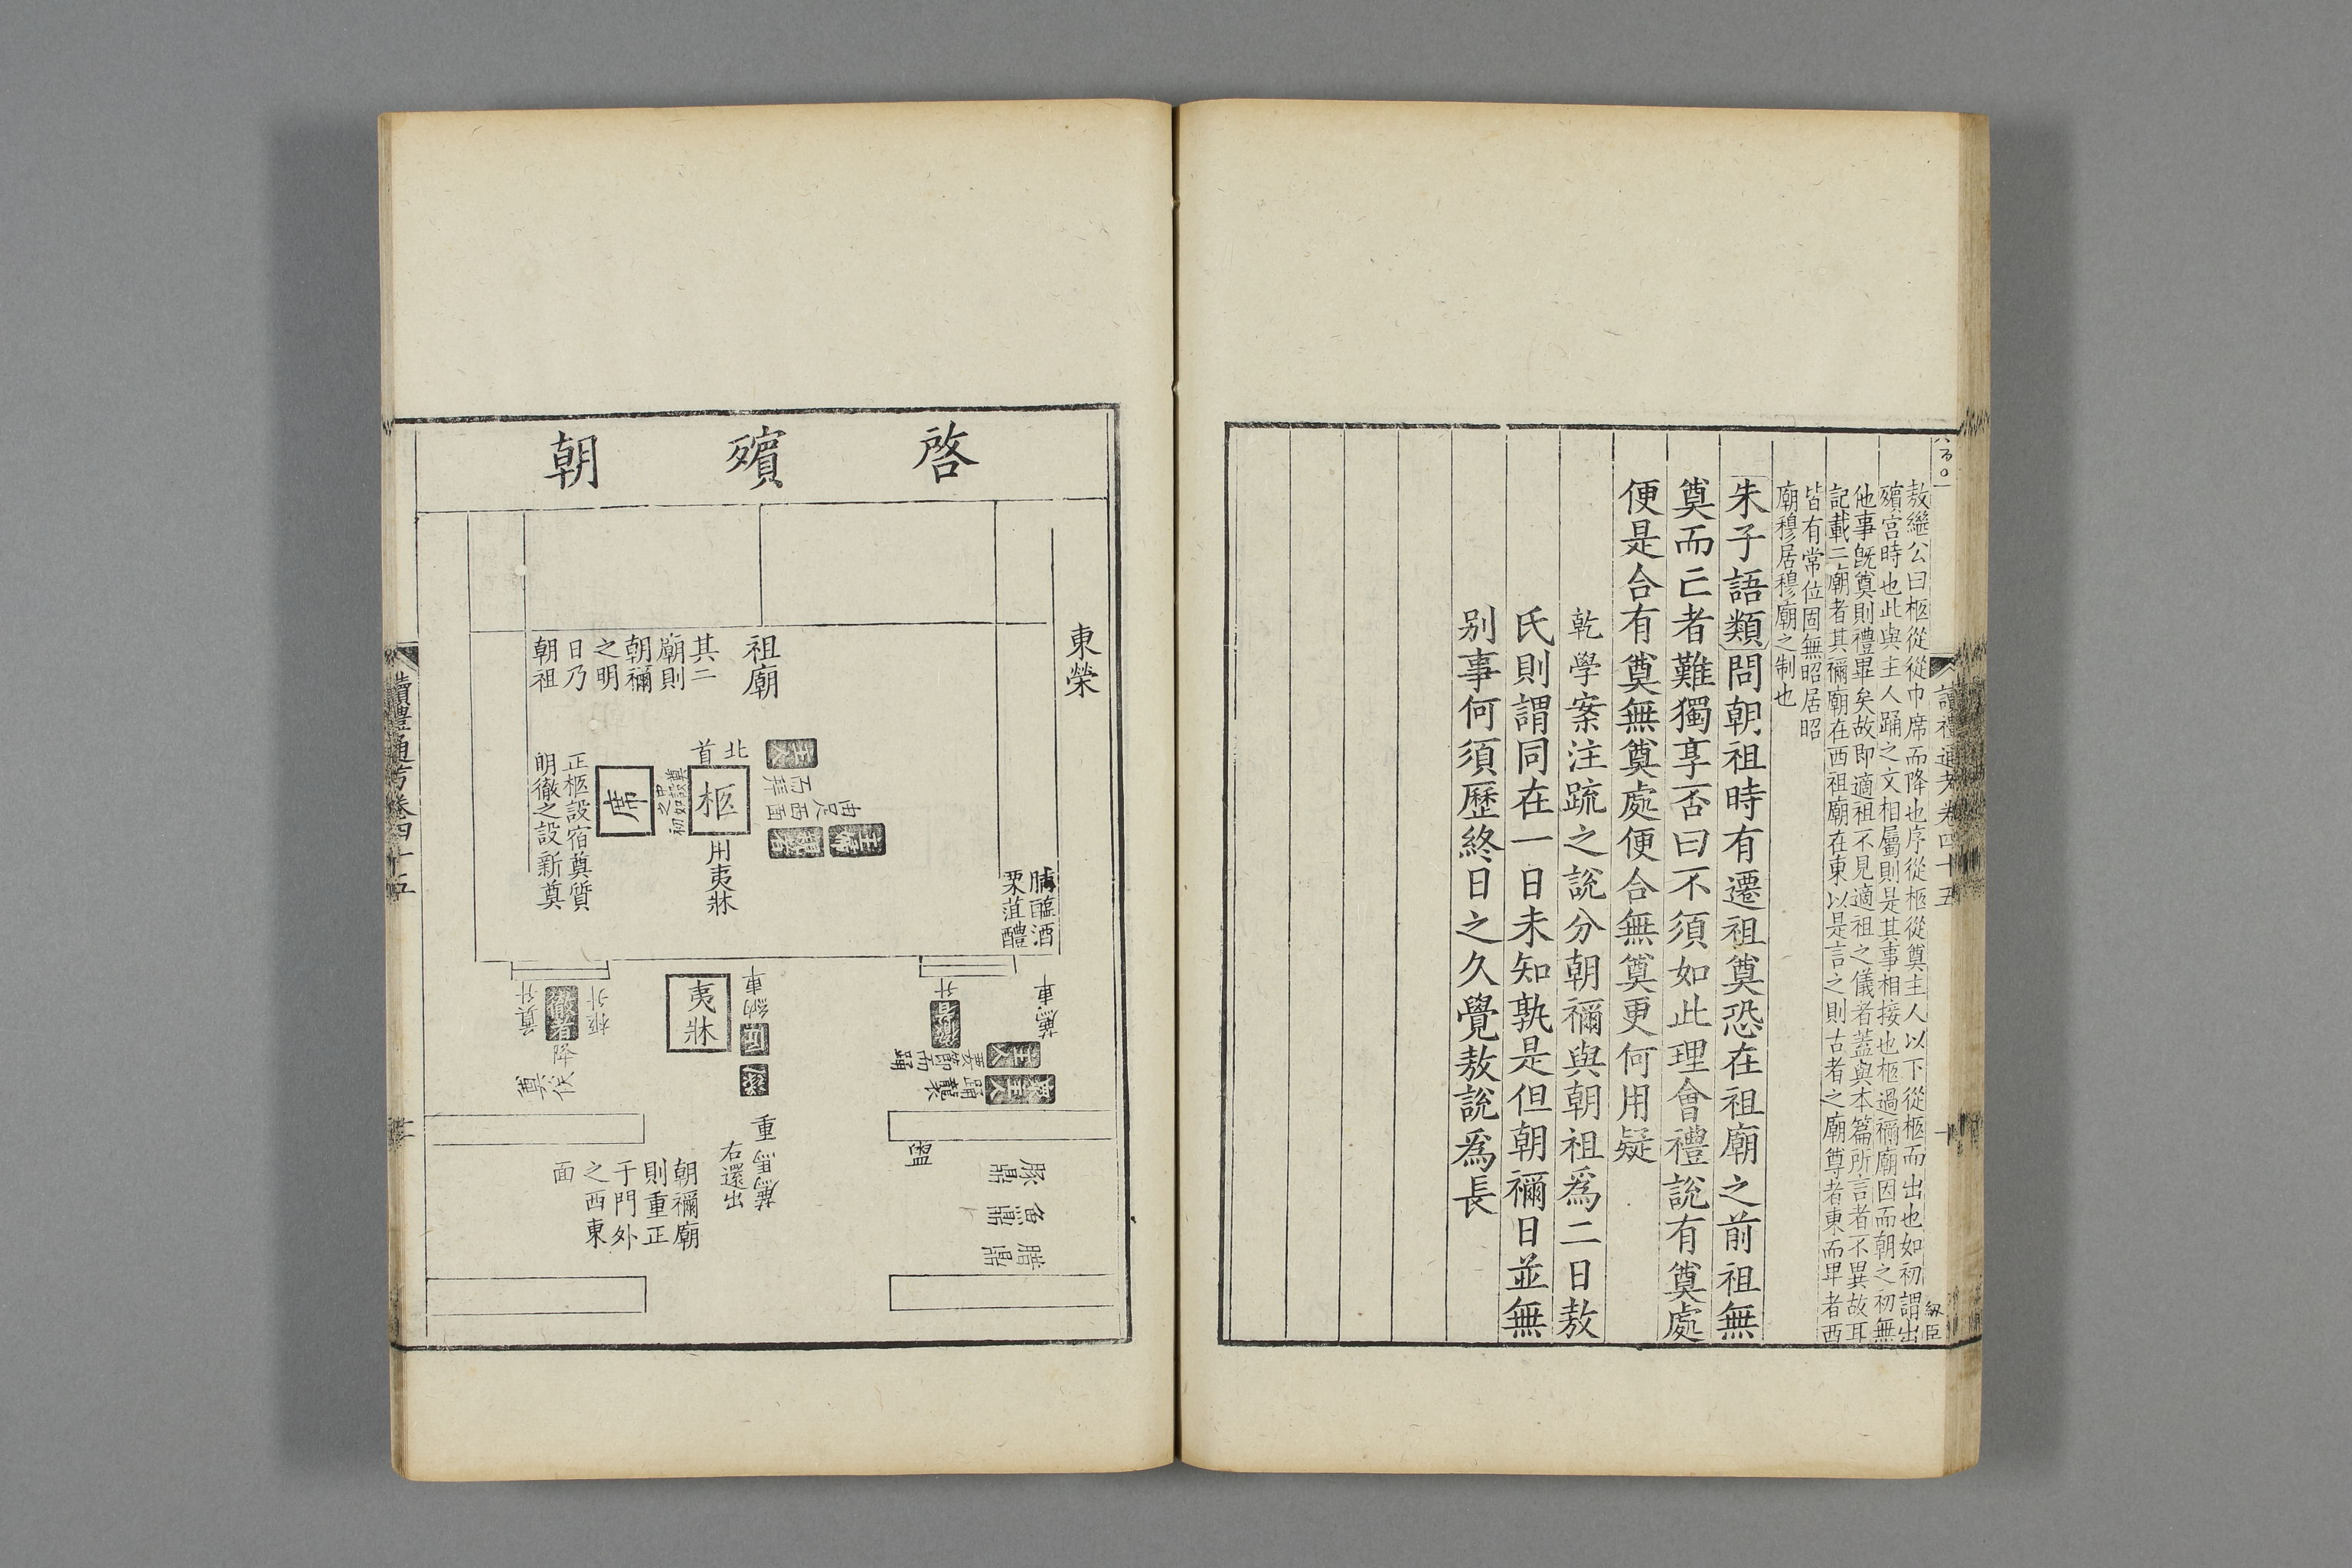 讀禮通考卷四十五
十
敖繼公曰柩從從巾席而降也序從柩從奠主人以下從柩而出也如初謂出
殯宮時也此與主人踊之文相屬則是其事相接也柩過禰廟因而朝之初無
他事旣奠則禮畢矣故即適祖不見適祖之儀者蓋與本篇所言者不異故耳
記載二廟者其禰廟在西祖廟在東以是言之則古者之廟尊者東而卑者西
皆有常位固無昭居昭
廟穆居穆廟之制也
朱子語類問朝祖時有遷祖奠恐在祖廟之前祖無
奠而亡者難獨享否曰不須如此理會禮說有奠處
便是合有奠無奠處便合無奠更何用疑
乾學案注䟽之說分朝禰與朝祖爲二日敖
氏則謂同在一日未知孰是但朝禰日並無
别事何須歷終日之久覺敖說爲長
啓殯朝
東榮
祖廟
其二
廟則
朝禰
之明
日乃
朝祖
北首
主人
西面
柩
席
用夷牀
正柩設宿奠質
明徹之設新奠
脯醢酒
栗菹醴
夷牀
徹者
柩升
奠升
降俟奠
車
納車
薦車
主人
要節而踊
踊襲
重
薦馬
右還出
朝禰廟
則重正
于門外
之西東
面
盥
豚鼎
魚鼎
腊鼎
讀禮通考卷四十五